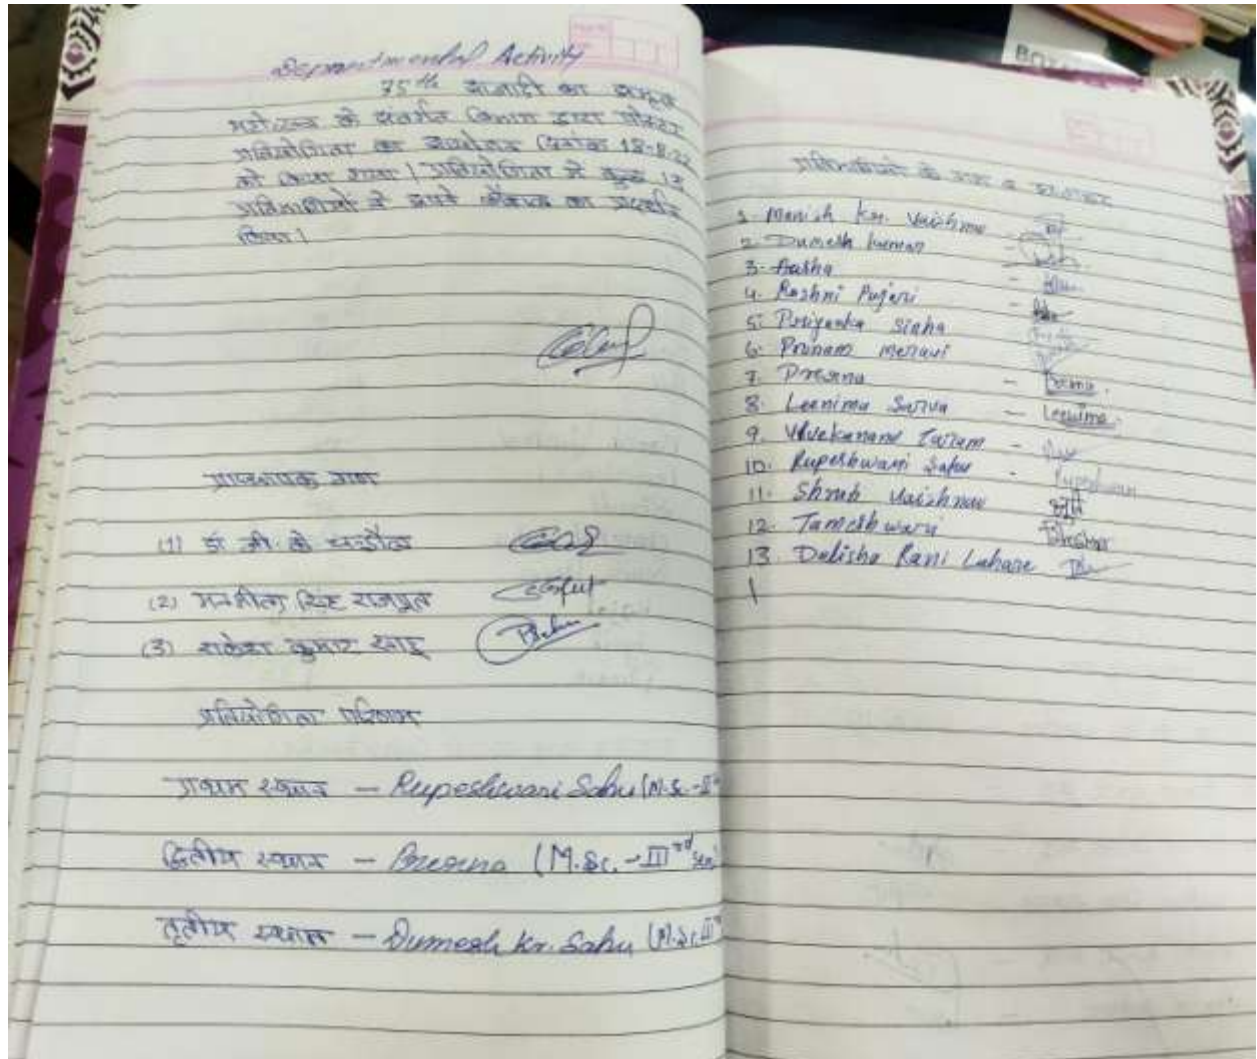 Departmental Activity
75th आजादी का अमृत
महोत्सव के अंतर्गत विभाग द्वारा पोस्टर
प्रतियोगिता का आयोजन दिनांक 18-8-22
को किया गया। प्रतियोगिता में कुल 13
प्रतिभागियों ने अपने कौशल का प्रदर्शन
किया।
प्राध्यापक गण
(1) डॉ. जी. के
(2) सिंह राजपूत
(3) राकेश कुमार साहू
प्रतियोगिता परिणाम
प्रथम स्थान - Rupeshwari Sahu (M.Sc.-
द्वितीय स्थान - Prerna (M.Sc.-IIIrd Sem
तृतीय स्थान - Dumesh Kr. Sahu (M.Sc. III
प्रतिभागियों के नाम व हस्ताक्षर
1. Manish Kr. Vaishnav
2. Dumesh kumar
3. Aasha
4. Roshni Pujari
5. Priyanka Sinha
6. Poonam Meravi
7. Prerna - Prerna
8. Leenima Surva - Leenima
9. Vivekanand Taram -
10. Rupeshwari Sahu - Rupeshwari
11. Shrub Vaishnav
12. Tameshwari
13. Dalisha Rani Lahare
BOX